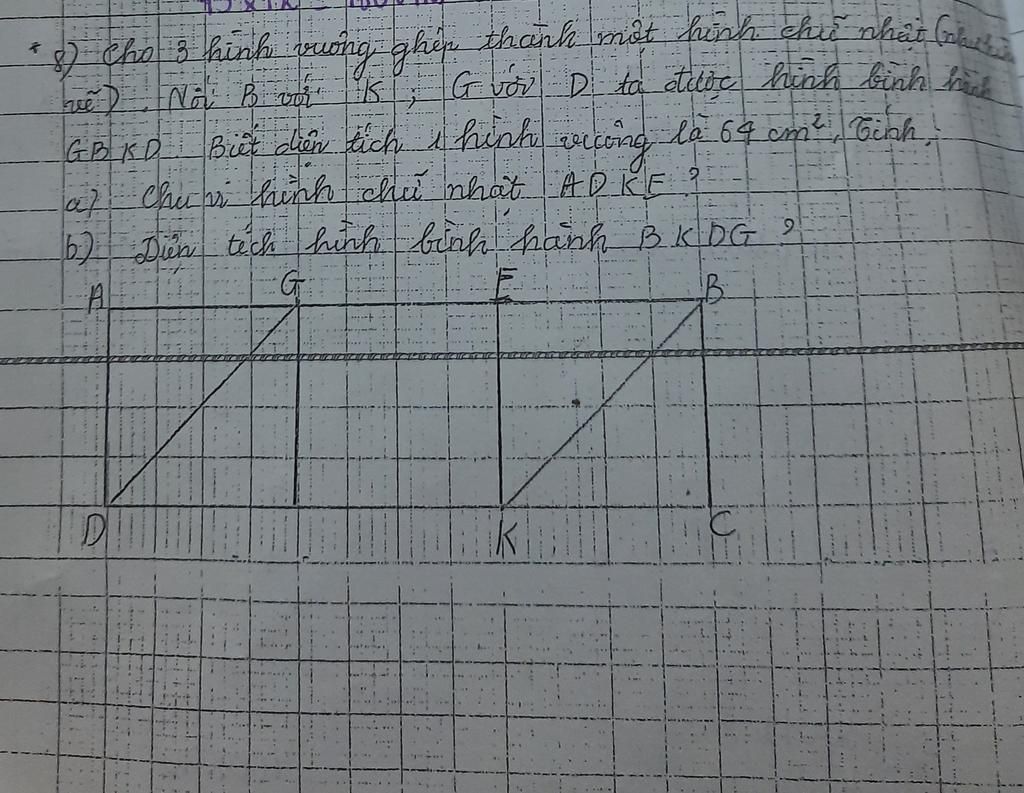 * 8) Cho 3 hình vuông ghép thành một hình chữ nhật (như hình
vẽ). Nối B với K; G với D ta được hình bình hành
GBKD. Biết diện tích 1 hình vuông là 64 cm², Tính:
a) Chu vi hình chữ nhật ADKE?
b) Diện tích hình bình hành BKDG?
A G E B
D K C